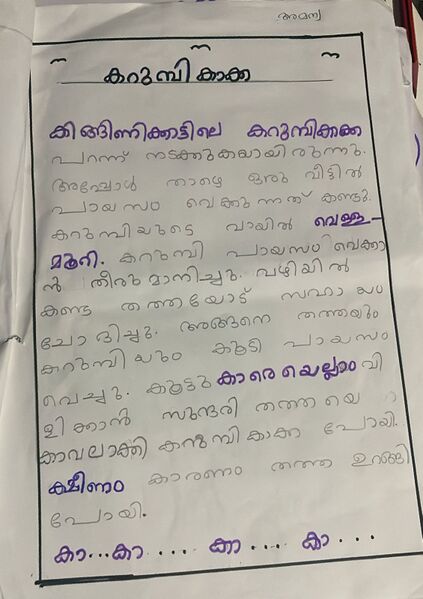 അമന്യ
കറുമ്പികാക്ക
കിങ്ങിണിക്കാട്ടിലെ കറുമ്പികാക്ക
പറന്ന് നടക്കുകയായിരുന്നു.
അപ്പോൾ താഴെ ഒരു വീട്ടിൽ
പായസം വെക്കുന്നത് കണ്ടു.
കറുമ്പിയുടെ വായിൽ വെള്ള-
മൂറി. കറുമ്പി പായസം വെക്കാ
ൻ തീരുമാനിച്ചു. വഴിയിൽ
കണ്ട തത്തയോട് സഹായം
ചോദിച്ചു. അങ്ങനെ തത്തയും
കറുമ്പിയും കൂടി പായസം
വെച്ചു. കൂട്ടുകാരെയെല്ലാം വി
ളിക്കാൻ സുന്ദരി തത്തയെ
കാവലാക്കി കറുമ്പികാക്ക പോയി.
ക്ഷീണം കാരണം തത്ത ഉറങ്ങി
പോയി.
കാ...കാ .... കാ ... കാ ...